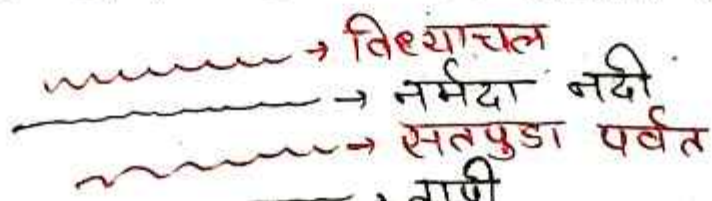 → विंध्याचल
→ नर्मदा नदी
→ सतपुडा पर्वत
→ तापी